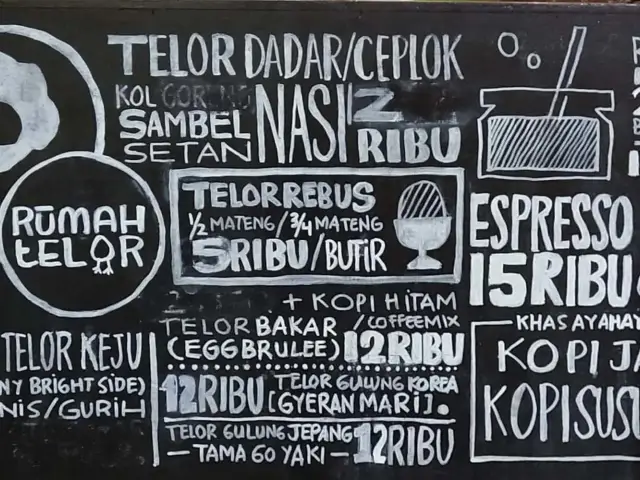 TELOR DADAR/CEPLOK
KOL GORENG
SAMBEL
SETAN
NASI
RIBU
RUMAH
tELOR
TELOR REBUS
½ MATENG / ¾ MATENG
5RIBU/BUTIR
+ KOPI HITAM
/COFFEEMIX
TELOR BAKAR
(EGG BRULEE) 12RIBU
12RIBU TELOR GULUNG KOREA
[GYERAN MARI].
TELOR GULUNG JEPANG
—TAMA GO YAKI— 12RIBU
TELOR KEJU
NY BRIGHT SIDE)
NIS/GURIH
ESPRESSO
15RIBU
KHAS AYAHAY
KOPI JA
KOPI SUSU